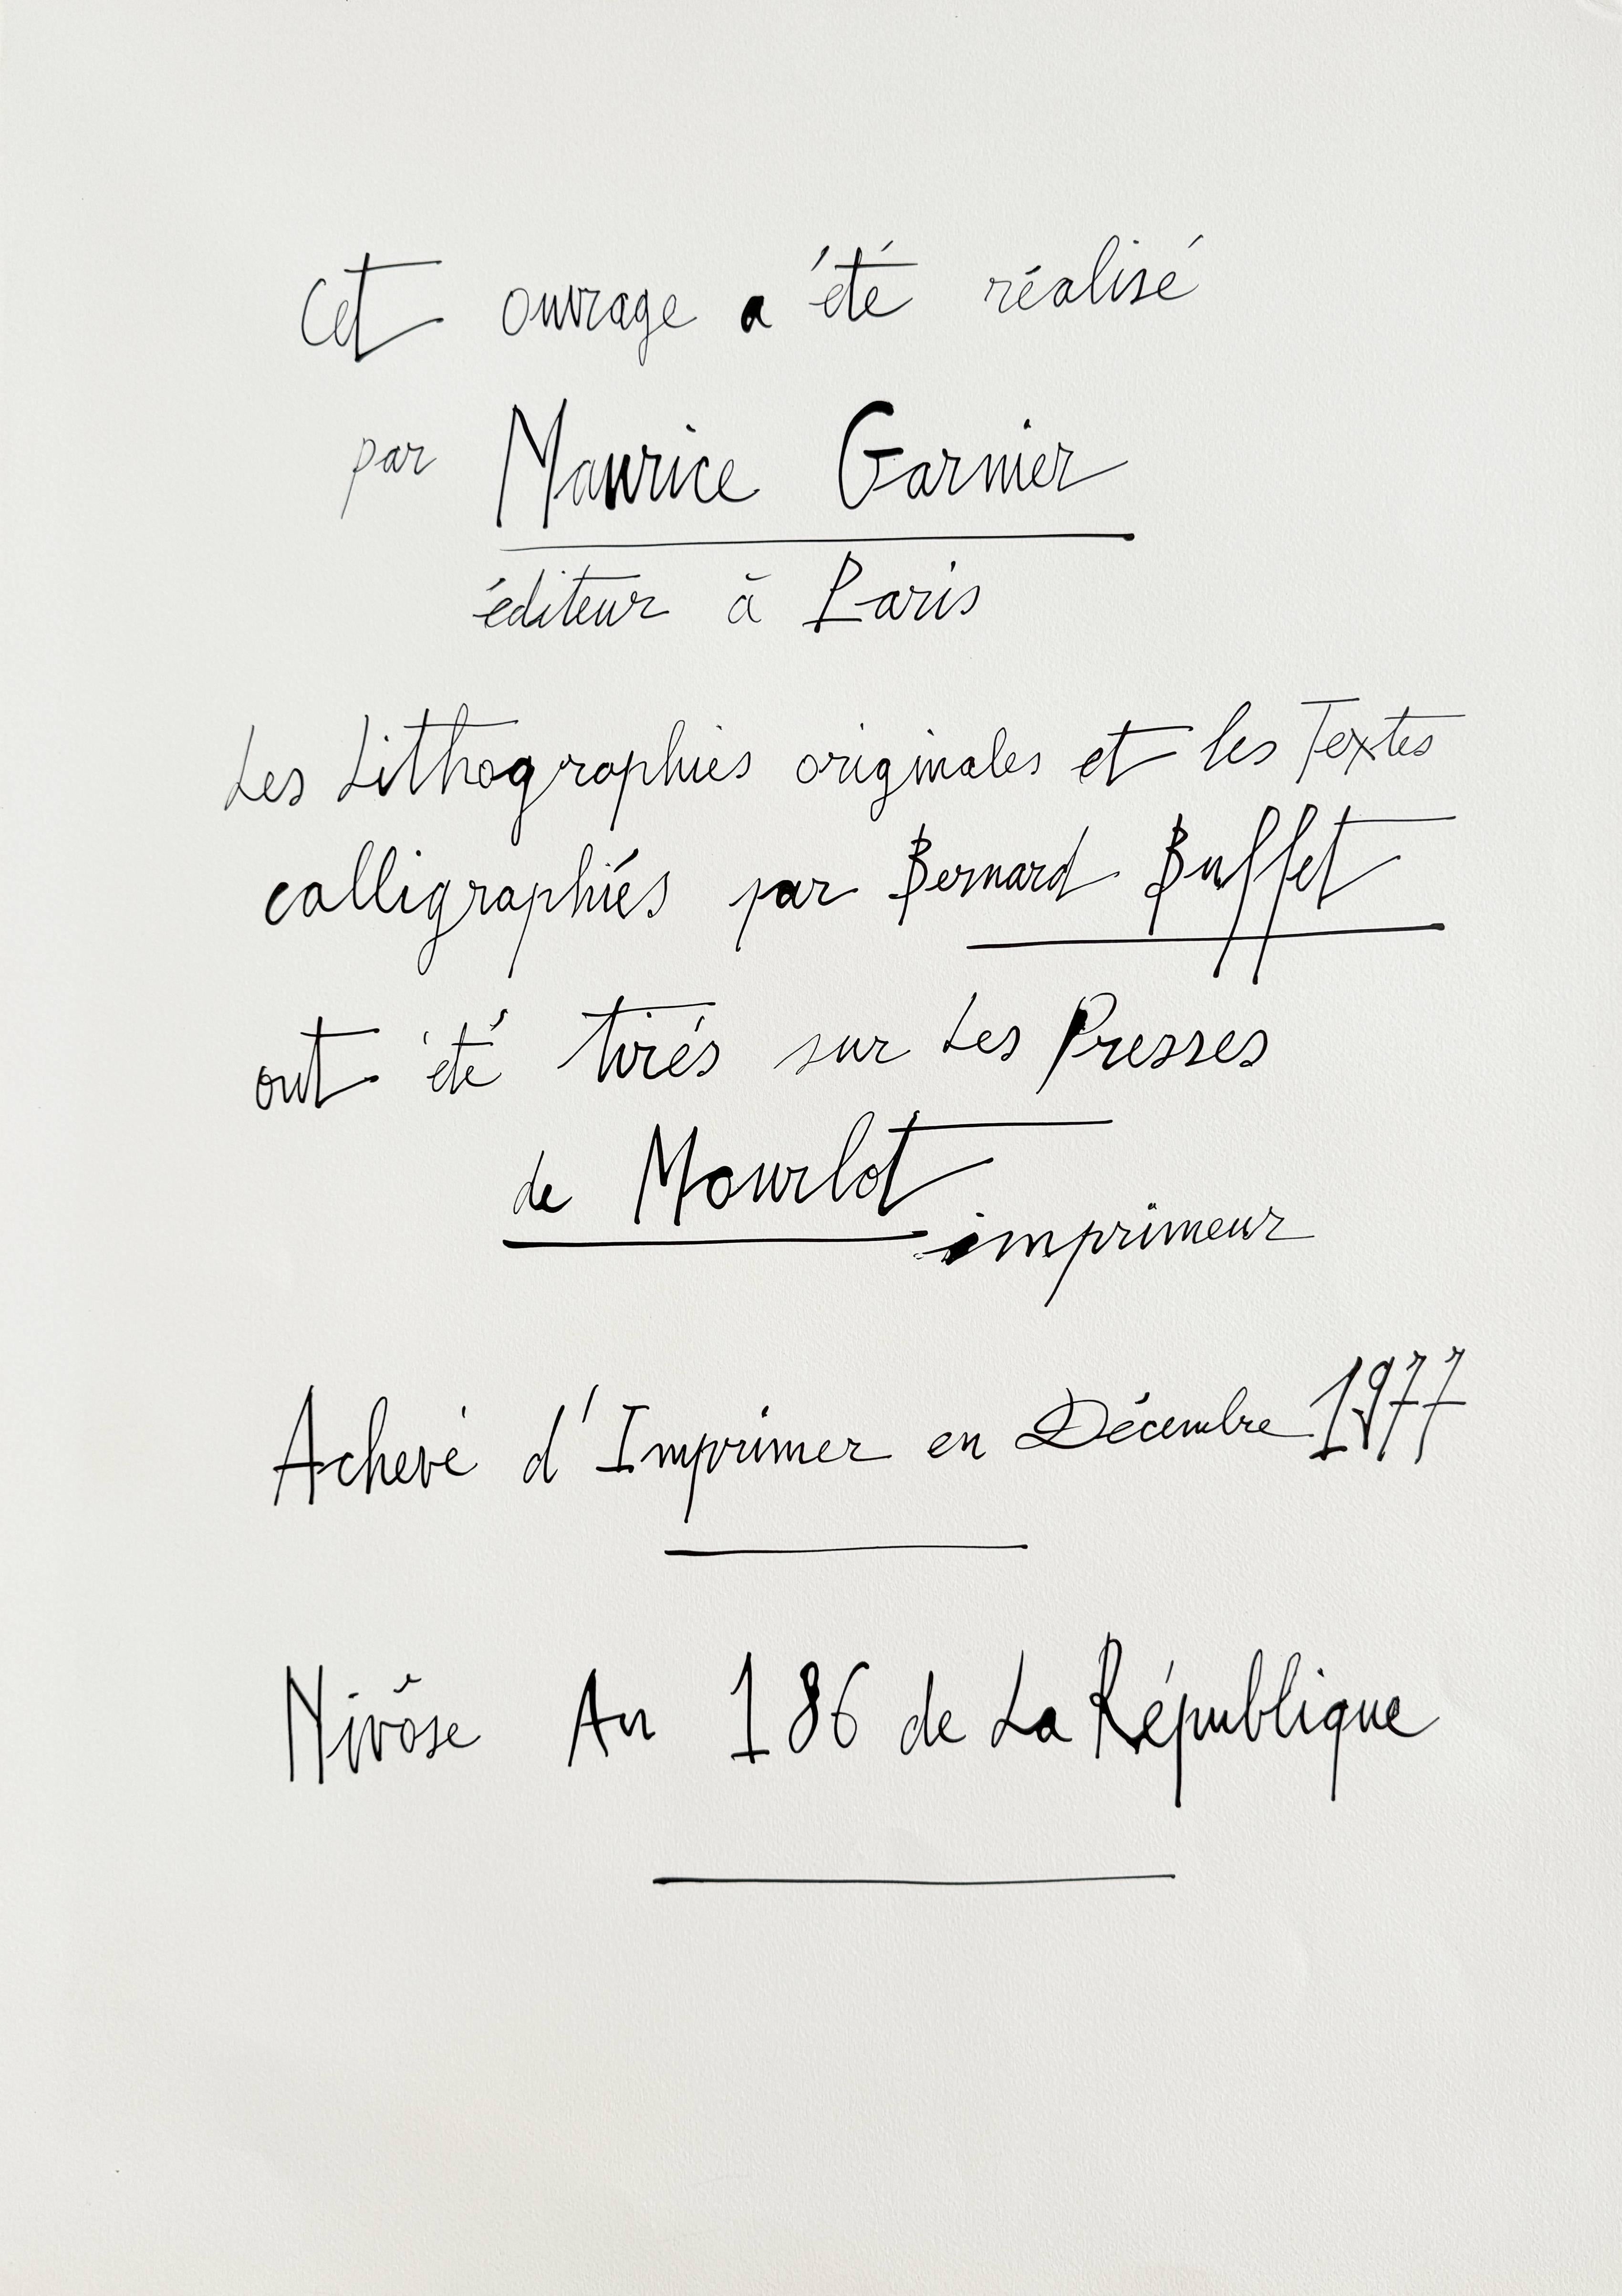 Cet ouvrage a été réalisé
par Maurice Garnier
éditeur à Paris
Les Lithographies originales et les Textes
calligraphiés par Bernard Buffet
ont été tirés sur Les Presses
de Mourlot
imprimeur
Achevé d'Imprimer en Décembre 1977
Nivôse An 186 de La République